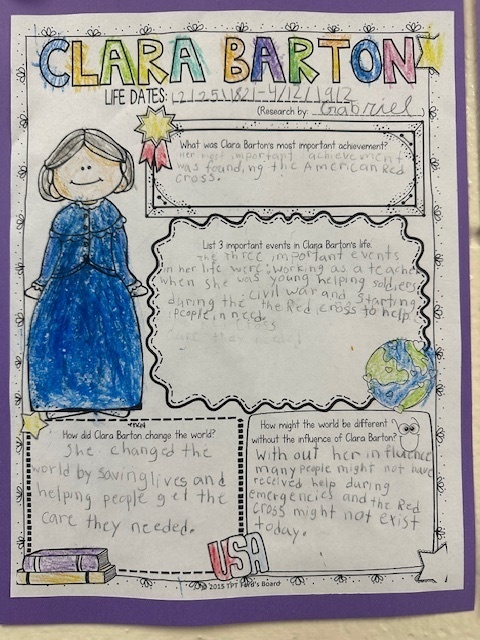 CLARA BARTON
LIFE DATES: 12/25/1821-4/12/1912
(Research by: Gabriel)
What was Clara Barton's most important achievement?
Her most important achievement
was founding the American Red
Cross.
List 3 important events in Clara Barton's life.
The three important events
in her life were: working as a teacher
when she was young helping soldiers
during the Civil war and starting
the Red cross to help
people in need.
How did Clara Barton change the world?
She changed the
world by saving lives and
helping people get the
care they needed.
How might the world be different
without the influence of Clara Barton?
With out her influence
many people might not have
received help during
emergencies and the Red
Cross might not exist
today.
USA
© 2015 TPT Ford's Board